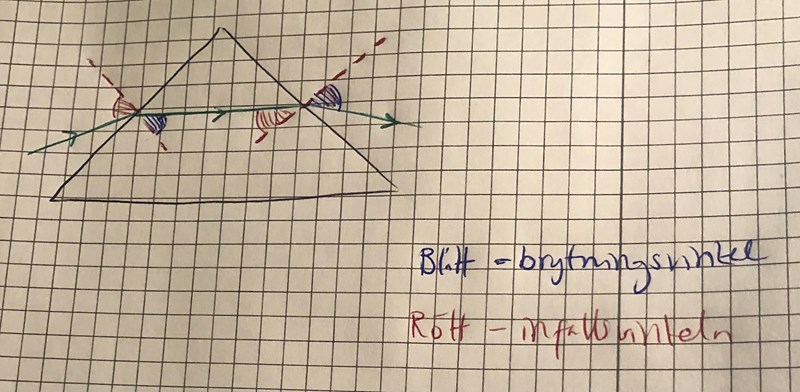 Blått - brytningsvinkel
Rött - infallsvinkeln